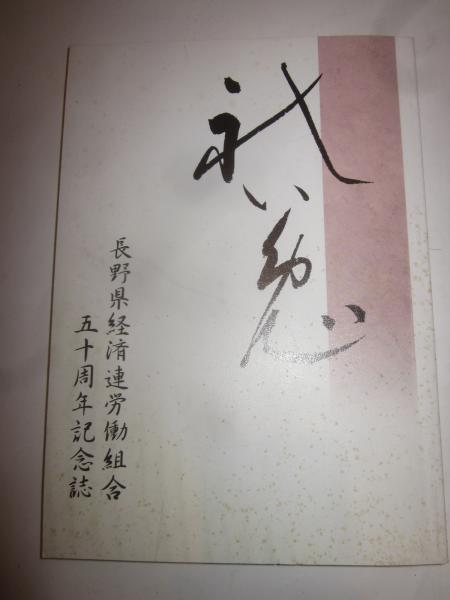 長野県経済連労働組合
五十周年記念誌